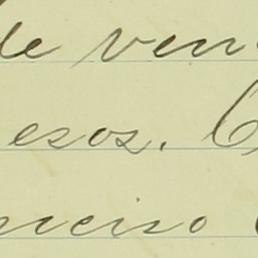 de ven
esos. C
nciso